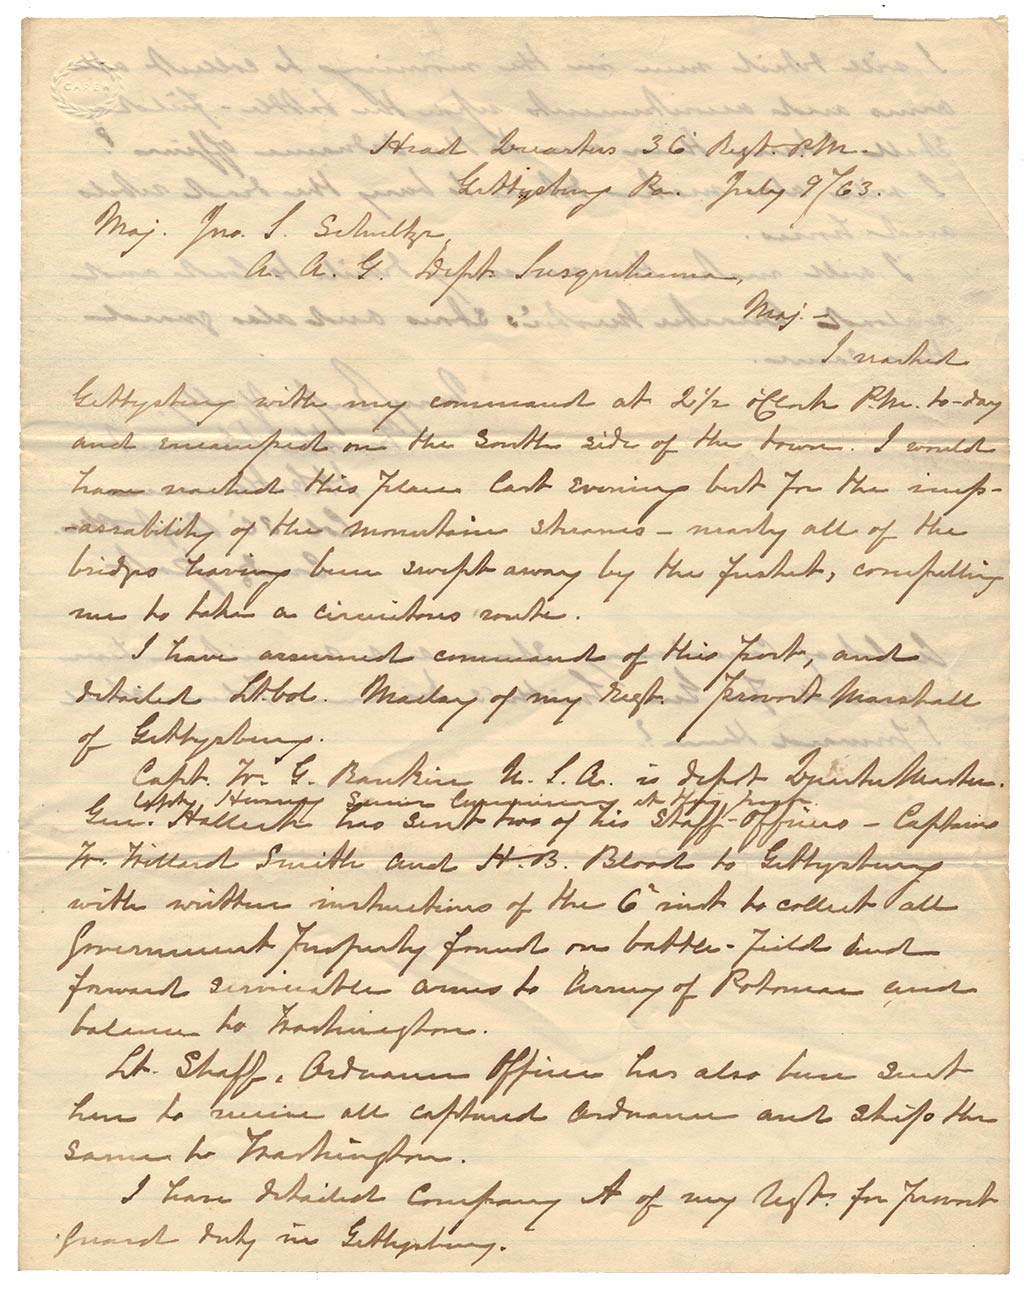 CAREW
Head Quarters 36 Regt. P.M.
Gettysburg Pa. July 9/63.
Maj. Jno. S. Schultze,
A. A. G. Dept. Susquehanna,
Maj. -
I reached
Gettysburg with my command at 2 1/2 o'Clock P.M. to-day
and encamped on the South side of the town. I would
have reached this place last evening but for the imp-
-assability of the mountain streams - nearly all of the
bridges having been swept away by the freshet, compelling
me to take a circuitous route.
I have assumed command of this post, and
detailed Lt. Col. Maclay of my regt. Provost Marshall
of Gettysburg.
Capt. W. G. Rankin U. S. A. is depot Quarter Master.
Capt. Henry Senior Commissary at
Gen. Halleck has sent two of his Staff-Officers - Captains
W. Willard Smith and H. B. Blood to Gettysburg
with written instructions of the 6" inst to collect all
Government property found on battle-field and
forward serviceable arms to Army of Potomac and
balance to Washington.
Lt. Shaff, Ordnance Officer has also been sent
here to receive all captured Ordnance and ship the
same to Washington.
I have detailed Company A of my regt. for provost
guard duty in Gettysburg.